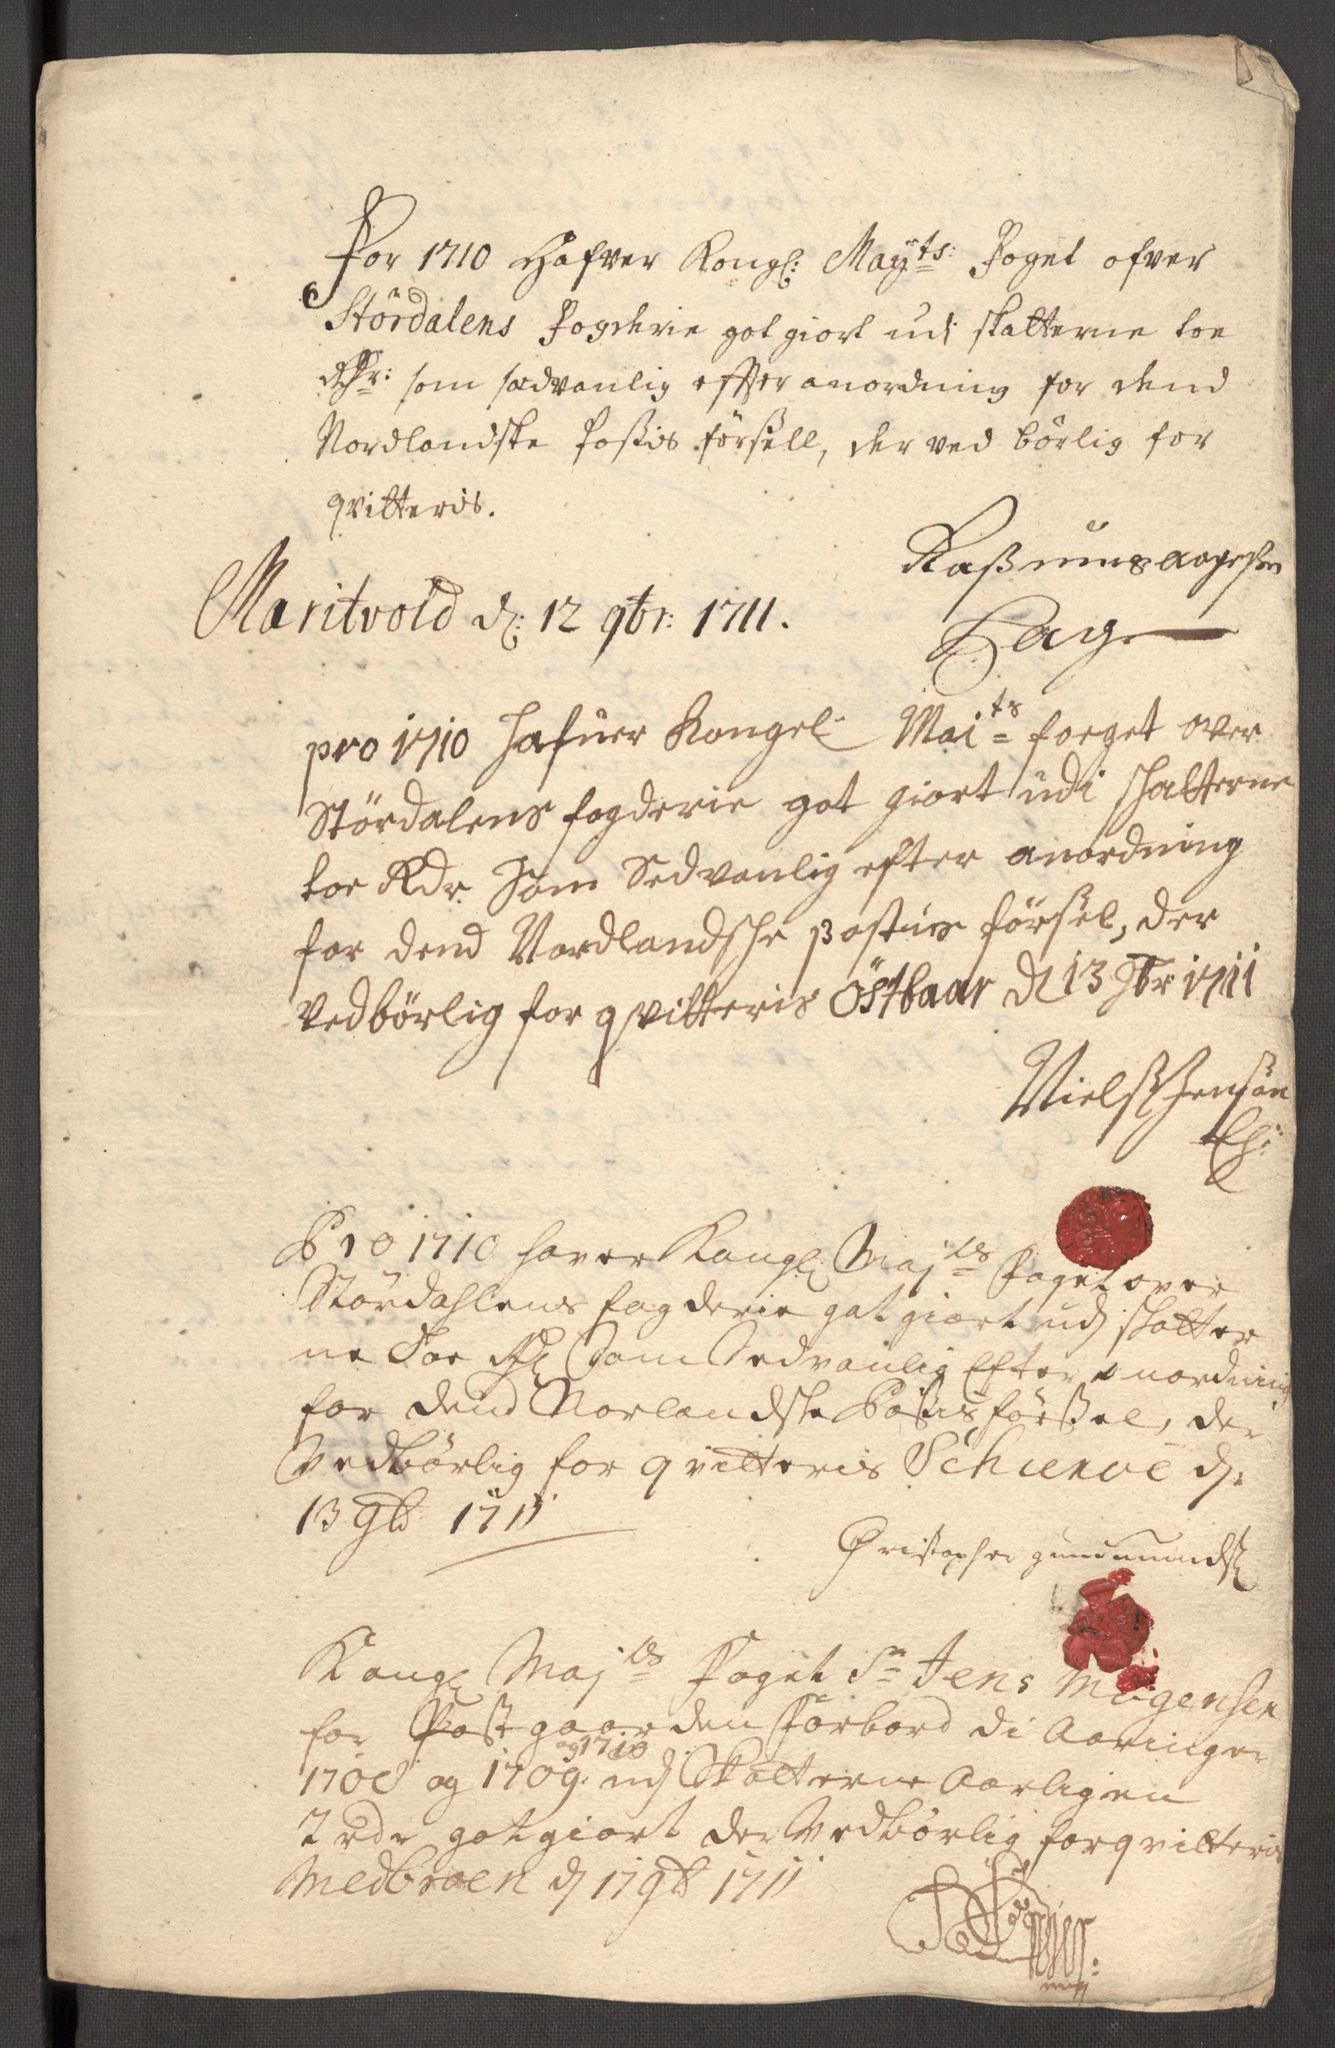 For 1710 Hafver Kongl: Mayts: Foget ofver
Stördalens Fogderie got giort udj skatterne toe
Rdr: som sædvanlig effter anordning for dend
Nordlandske Postis förssell, der ved börlig for
qvitteris.
Rasmus Aagesen
Maritvold d: 12 9br: 1711.
Hage
pro 1710 hafuer Kongel Maits foeget over
Stördalens fogderie got giort udi schatterne
toe Rdr. Som Sedvanlig efter anordning
for dend Nordlandsche postiis försel, der
vedbörlig for qvitteris Östbaar d 13 9br 1711
Niels Jensön
Pro 1710 haver Kongl Majts Foget over
Stördahlens fogderie got giort udj skatter
ne Toe Rd Som Sedvanlig Efter anordning
for dend Norlandske Postis försel, der
vedbörlig for qvitteris Schierve d:
13 9b 1711
Christopher gundmunds
Kongl Majts Foget Sr Jens Mogensen
for Postgaarden Forbord di Aaringer
og 1710
1708 og 1709. udj Skatterne Aarligen
2 rdr gotgiort der Vedbörlig forqvitteris
Medbroen d 17 9b 1711